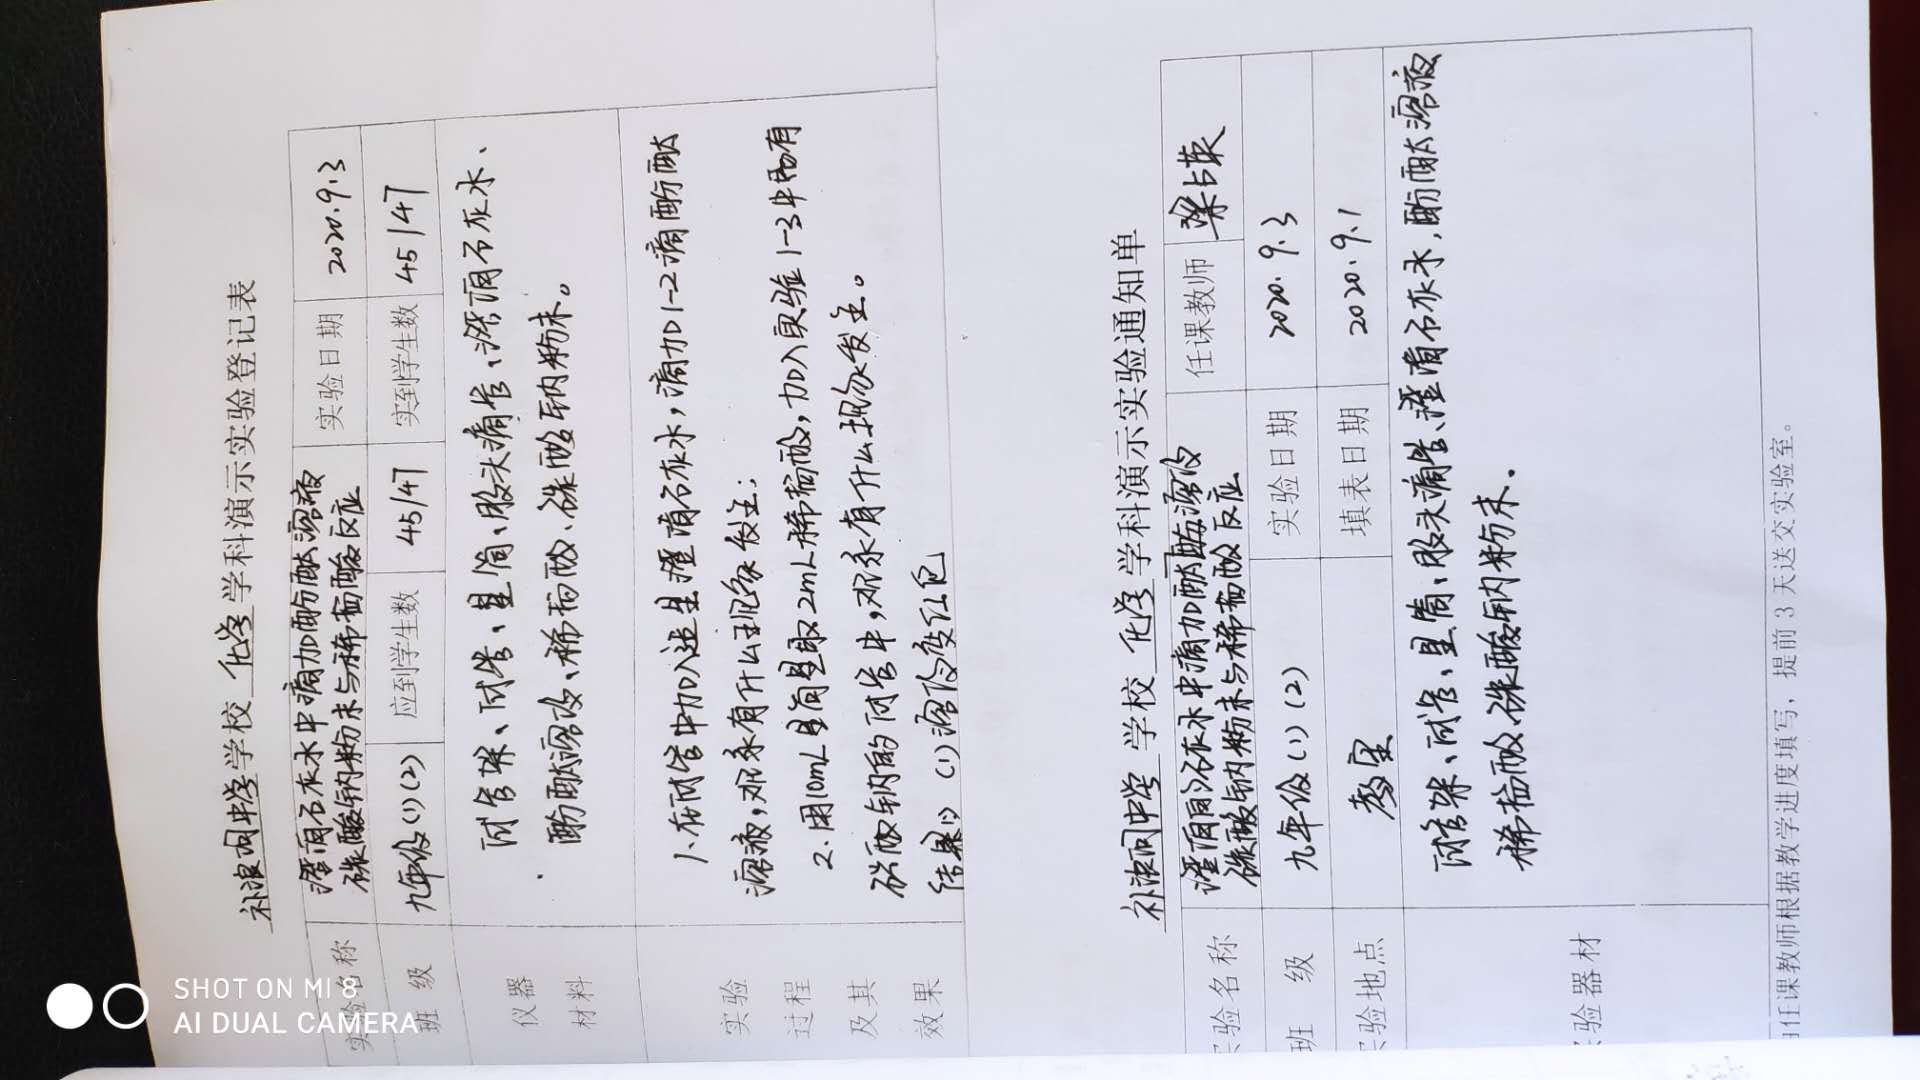 补浪河中学学校 化学 学科演示实验登记表
实验名称 澄清石灰水中滴加酚酞溶液 碳酸钠粉末与稀盐酸反应 实验日期 2020.9.3
班 级 九年级(1)(2) 应到学生数 45/47 实到学生数 45/47
仪器材料
试管架、试管、量筒、胶头滴管、澄清石灰水、
酚酞溶液、稀盐酸、碳酸钠粉末。
实验过程及其效果
1.在试管中加入适量澄清石灰水,滴加1-2滴酚酞
溶液,观察有什么现象发生;
2.用10mL量筒量取2mL稀盐酸,加入实验1-3中盛有
碳酸钠的试管中,观察有什么现象发生。
结果: (1) 溶液变红色
补浪河中学 学校 化学 学科演示实验通知单
实验名称 澄清石灰水中滴加酚酞溶液 碳酸钠粉末与稀盐酸反应 任课教师
班 级 九年级(1)(2) 实验日期 2020.9.3
实验地点 教室 填表日期 2020.9.1
实验器材
试管架、试管、量筒、胶头滴管、澄清石灰水,酚酞溶液
稀盐酸、碳酸钠粉末.
任课教师根据教学进度填写，提前3天送交实验室。
SHOT ON MI 8
AI DUAL CAMERA